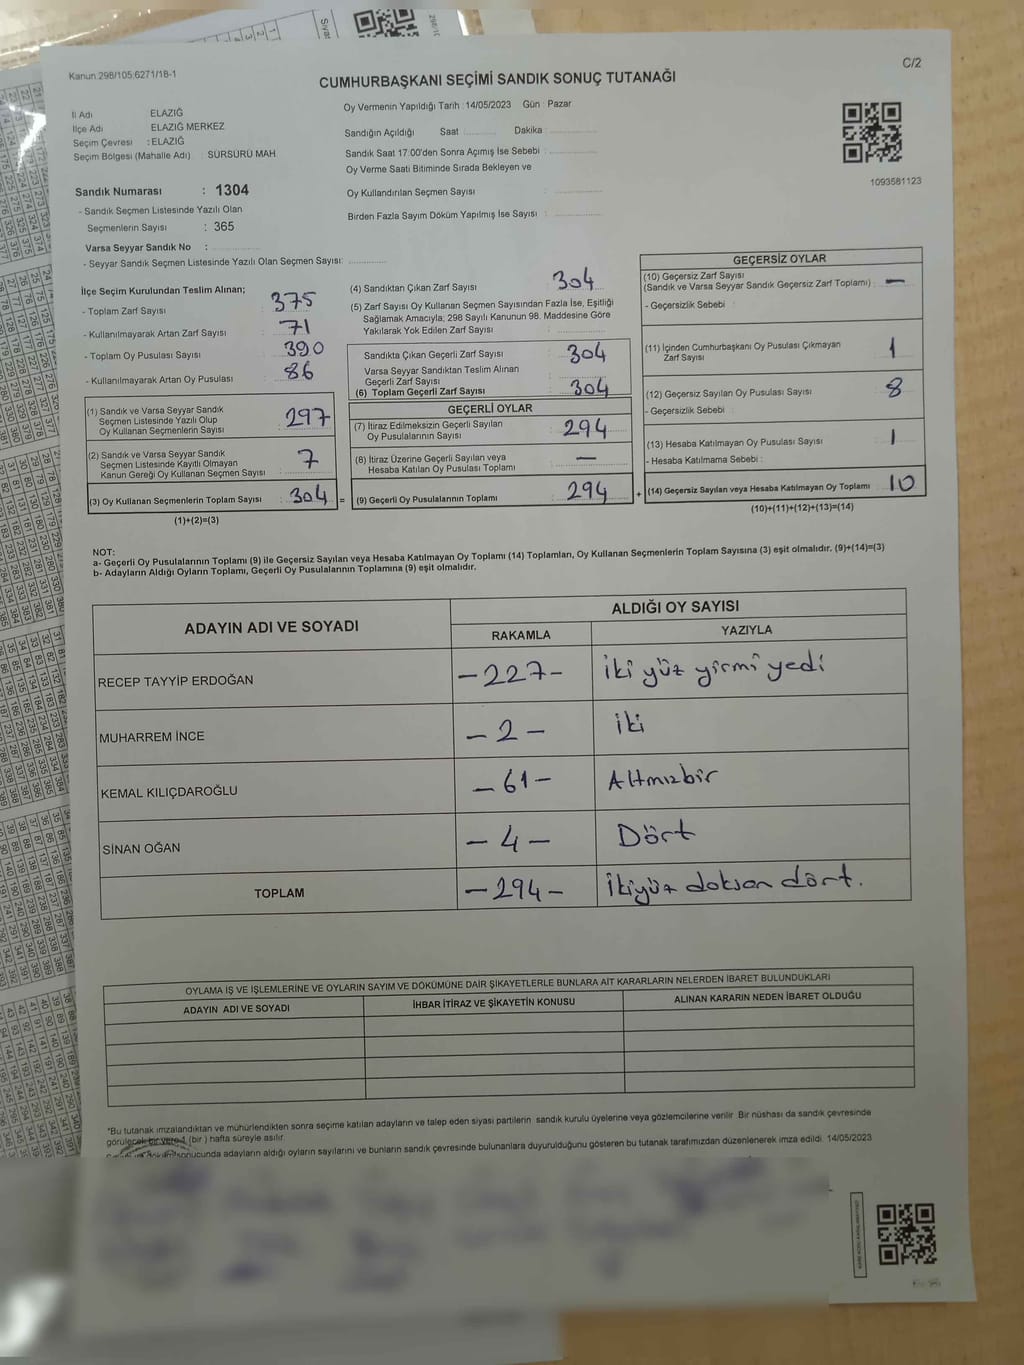 Kanun 298/105;6271/18-1
C/2
CUMHURBAŞKANI SEÇİMİ SANDIK SONUÇ TUTANAĞI
İl Adı ELAZIĞ
İlçe Adı ELAZIĞ MERKEZ
Seçim Çevresi : ELAZIĞ
Seçim Bölgesi (Mahalle Adı) : SÜRSÜRÜ MAH
Sandık Numarası : 1304
- Sandık Seçmen Listesinde Yazılı Olan
Seçmenlerin Sayısı : 365
Varsa Seyyar Sandık No :
- Seyyar Sandık Seçmen Listesinde Yazılı Olan Seçmen Sayısı:
Oy Vermenin Yapıldığı Tarih : 14/05/2023 Gün : Pazar
Sandığın Açıldığı Saat Dakika
Sandık Saat 17:00'den Sonra Açımış İse Sebebi :
Oy Verme Saati Bitiminde Sırada Bekleyen ve
Oy Kullandırılan Seçmen Sayısı :
Birden Fazla Sayım Döküm Yapılmış İse Sayısı :
1093581123
İlçe Seçim Kurulundan Teslim Alınan;
- Toplam Zarf Sayısı : 375
- Kullanılmayarak Artan Zarf Sayısı : 71
- Toplam Oy Pusulası Sayısı : 390
- Kullanılmayarak Artan Oy Pusulası : 86
(1) Sandık ve Varsa Seyyar Sandık
Seçmen Listesinde Yazılı Olup
Oy Kullanan Seçmenlerin Sayısı : 297
(2) Sandık ve Varsa Seyyar Sandık
Seçmen Listesinde Kayıtlı Olmayan
Kanun Gereği Oy Kullanan Seçmen Sayısı : 7
(3) Oy Kullanan Seçmenlerin Toplam Sayısı : 304 =
(1)+(2)=(3)
(4) Sandıktan Çıkan Zarf Sayısı : 304
(5) Zarf Sayısı Oy Kullanan Seçmen Sayısından Fazla İse, Eşitliği
Sağlamak Amacıyla; 298 Sayılı Kanunun 98. Maddesine Göre
Yakılarak Yok Edilen Zarf Sayısı :
Sandıkta Çıkan Geçerli Zarf Sayısı : 304
Varsa Seyyar Sandıktan Teslim Alınan
Geçerli Zarf Sayısı :
(6) Toplam Geçerli Zarf Sayısı : 304
GEÇERLİ OYLAR
(7) İtiraz Edilmeksizin Geçerli Sayılan
Oy Pusulalarının Sayısı : 294
(8) İtiraz Üzerine Geçerli Sayılan veya
Hesaba Katılan Oy Pusulası Toplamı : —
(9) Geçerli Oy Pusulalarının Toplamı : 294 +
GEÇERSİZ OYLAR
(10) Geçersiz Zarf Sayısı
(Sandık ve Varsa Seyyar Sandık Geçersiz Zarf Toplamı) : —
- Geçersizlik Sebebi :
(11) İçinden Cumhurbaşkanı Oy Pusulası Çıkmayan
Zarf Sayısı : 1
(12) Geçersiz Sayılan Oy Pusulası Sayısı : 8
- Geçersizlik Sebebi :
(13) Hesaba Katılmayan Oy Pusulası Sayısı : 1
- Hesaba Katılmama Sebebi :
(14) Geçersiz Sayılan veya Hesaba Katılmayan Oy Toplamı : 10
(10)+(11)+(12)+(13)=(14)
NOT:
a- Geçerli Oy Pusulalarının Toplamı (9) ile Geçersiz Sayılan veya Hesaba Katılmayan Oy Toplamı (14) Toplamları, Oy Kullanan Seçmenlerin Toplam Sayısına (3) eşit olmalıdır. (9)+(14)=(3)
b- Adayların Aldığı Oyların Toplamı, Geçerli Oy Pusulalarının Toplamına (9) eşit olmalıdır.
ADAYIN ADI VE SOYADI
ALDIĞI OY SAYISI
RAKAMLA YAZIYLA
RECEP TAYYİP ERDOĞAN -227- İki yüz yirmi yedi
MUHARREM İNCE -2- iki
KEMAL KILIÇDAROĞLU -61- Altmızbir
SİNAN OĞAN -4- Dört
TOPLAM -294- İkiyüz doksan dört.
OYLAMA İŞ VE İŞLEMLERİNE VE OYLARIN SAYIM VE DÖKÜMÜNE DAİR ŞİKAYETLERLE BUNLARA AİT KARARLARIN NELERDEN İBARET BULUNDUKLARI
ADAYIN ADI VE SOYADI İHBAR İTİRAZ VE ŞİKAYETİN KONUSU ALINAN KARARIN NEDEN İBARET OLDUĞU
*Bu tutanak imzalandıktan ve mühürlendikten sonra seçime katılan adayların ve talep eden siyasi partilerin sandık kurulu üyelerine veya gözlemcilerine verilir. Bir nüshası da sandık çevresinde
görülecek bir yere 1 (bir ) hafta süreyle asılır.
sonucunda adayların aldığı oyların sayılarını ve bunların sandık çevresinde bulunanlara duyurulduğunu gösteren bu tutanak tarafımızdan düzenlenerek imza edildi. 14/05/2023